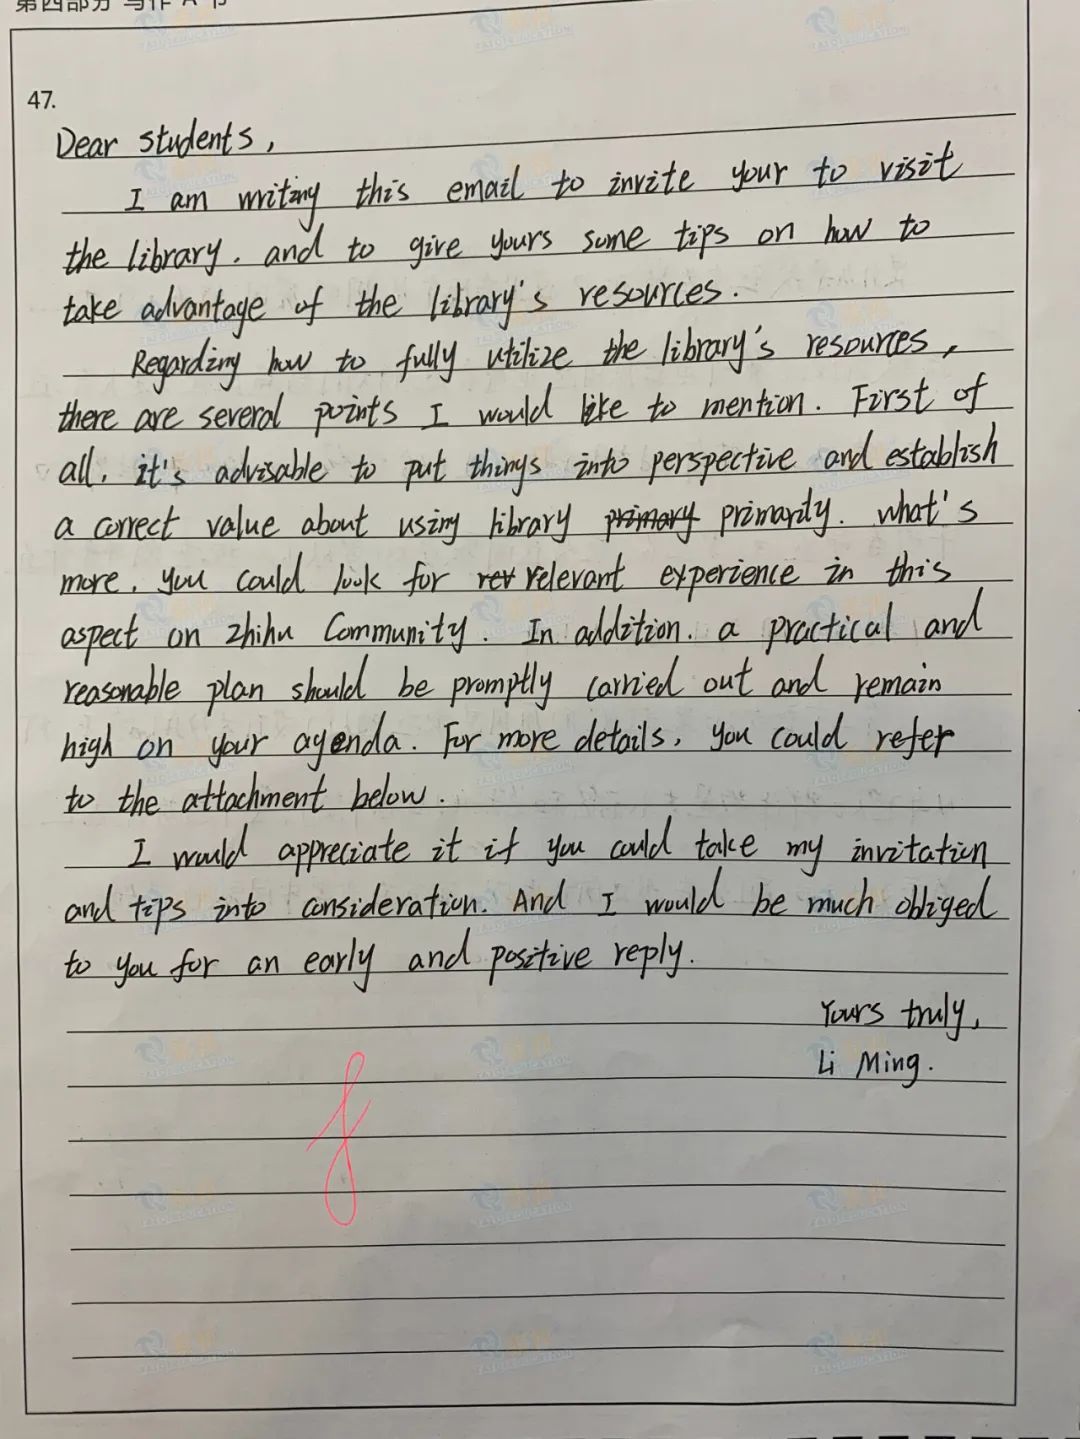 第四部分 写作 A 节
47.
Dear students,
I am writing this email to invite your to visit
the library. and to give yours some tips on how to
take advantage of the library's resources.
Regarding how to fully utilize the library's resources,
there are several points I would like to mention. First of
all, it's advisable to put things into perspective and establish
a correct value about using library primary primarily. what's
more, you could look for rev relevant experience in this
aspect on zhihu Community. In addition. a practical and
reasonable plan should be promptly carried out and remain
high on your agenda. For more details, you could refer
to the attachment below.
I would appreciate it if you could take my invitation
and tips into consideration. And I would be much obliged
to you for an early and positive reply.
Yours truly,
Li Ming.